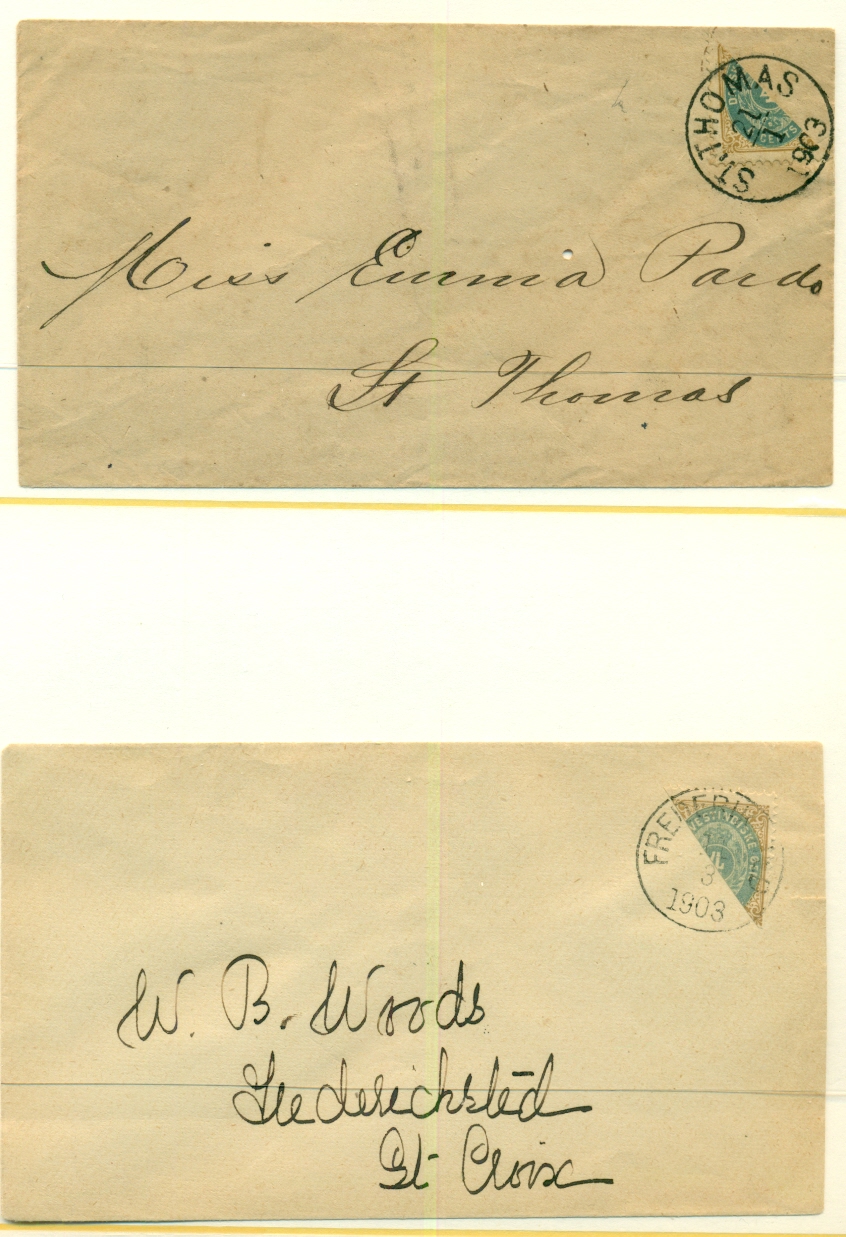 ST. THOMAS
21
1
1903
CENTS
Miss Emma Pardo
St Thomas
VESTINDISKE
4
3
1903
W. B. Woods
Frederiksted
St Croix